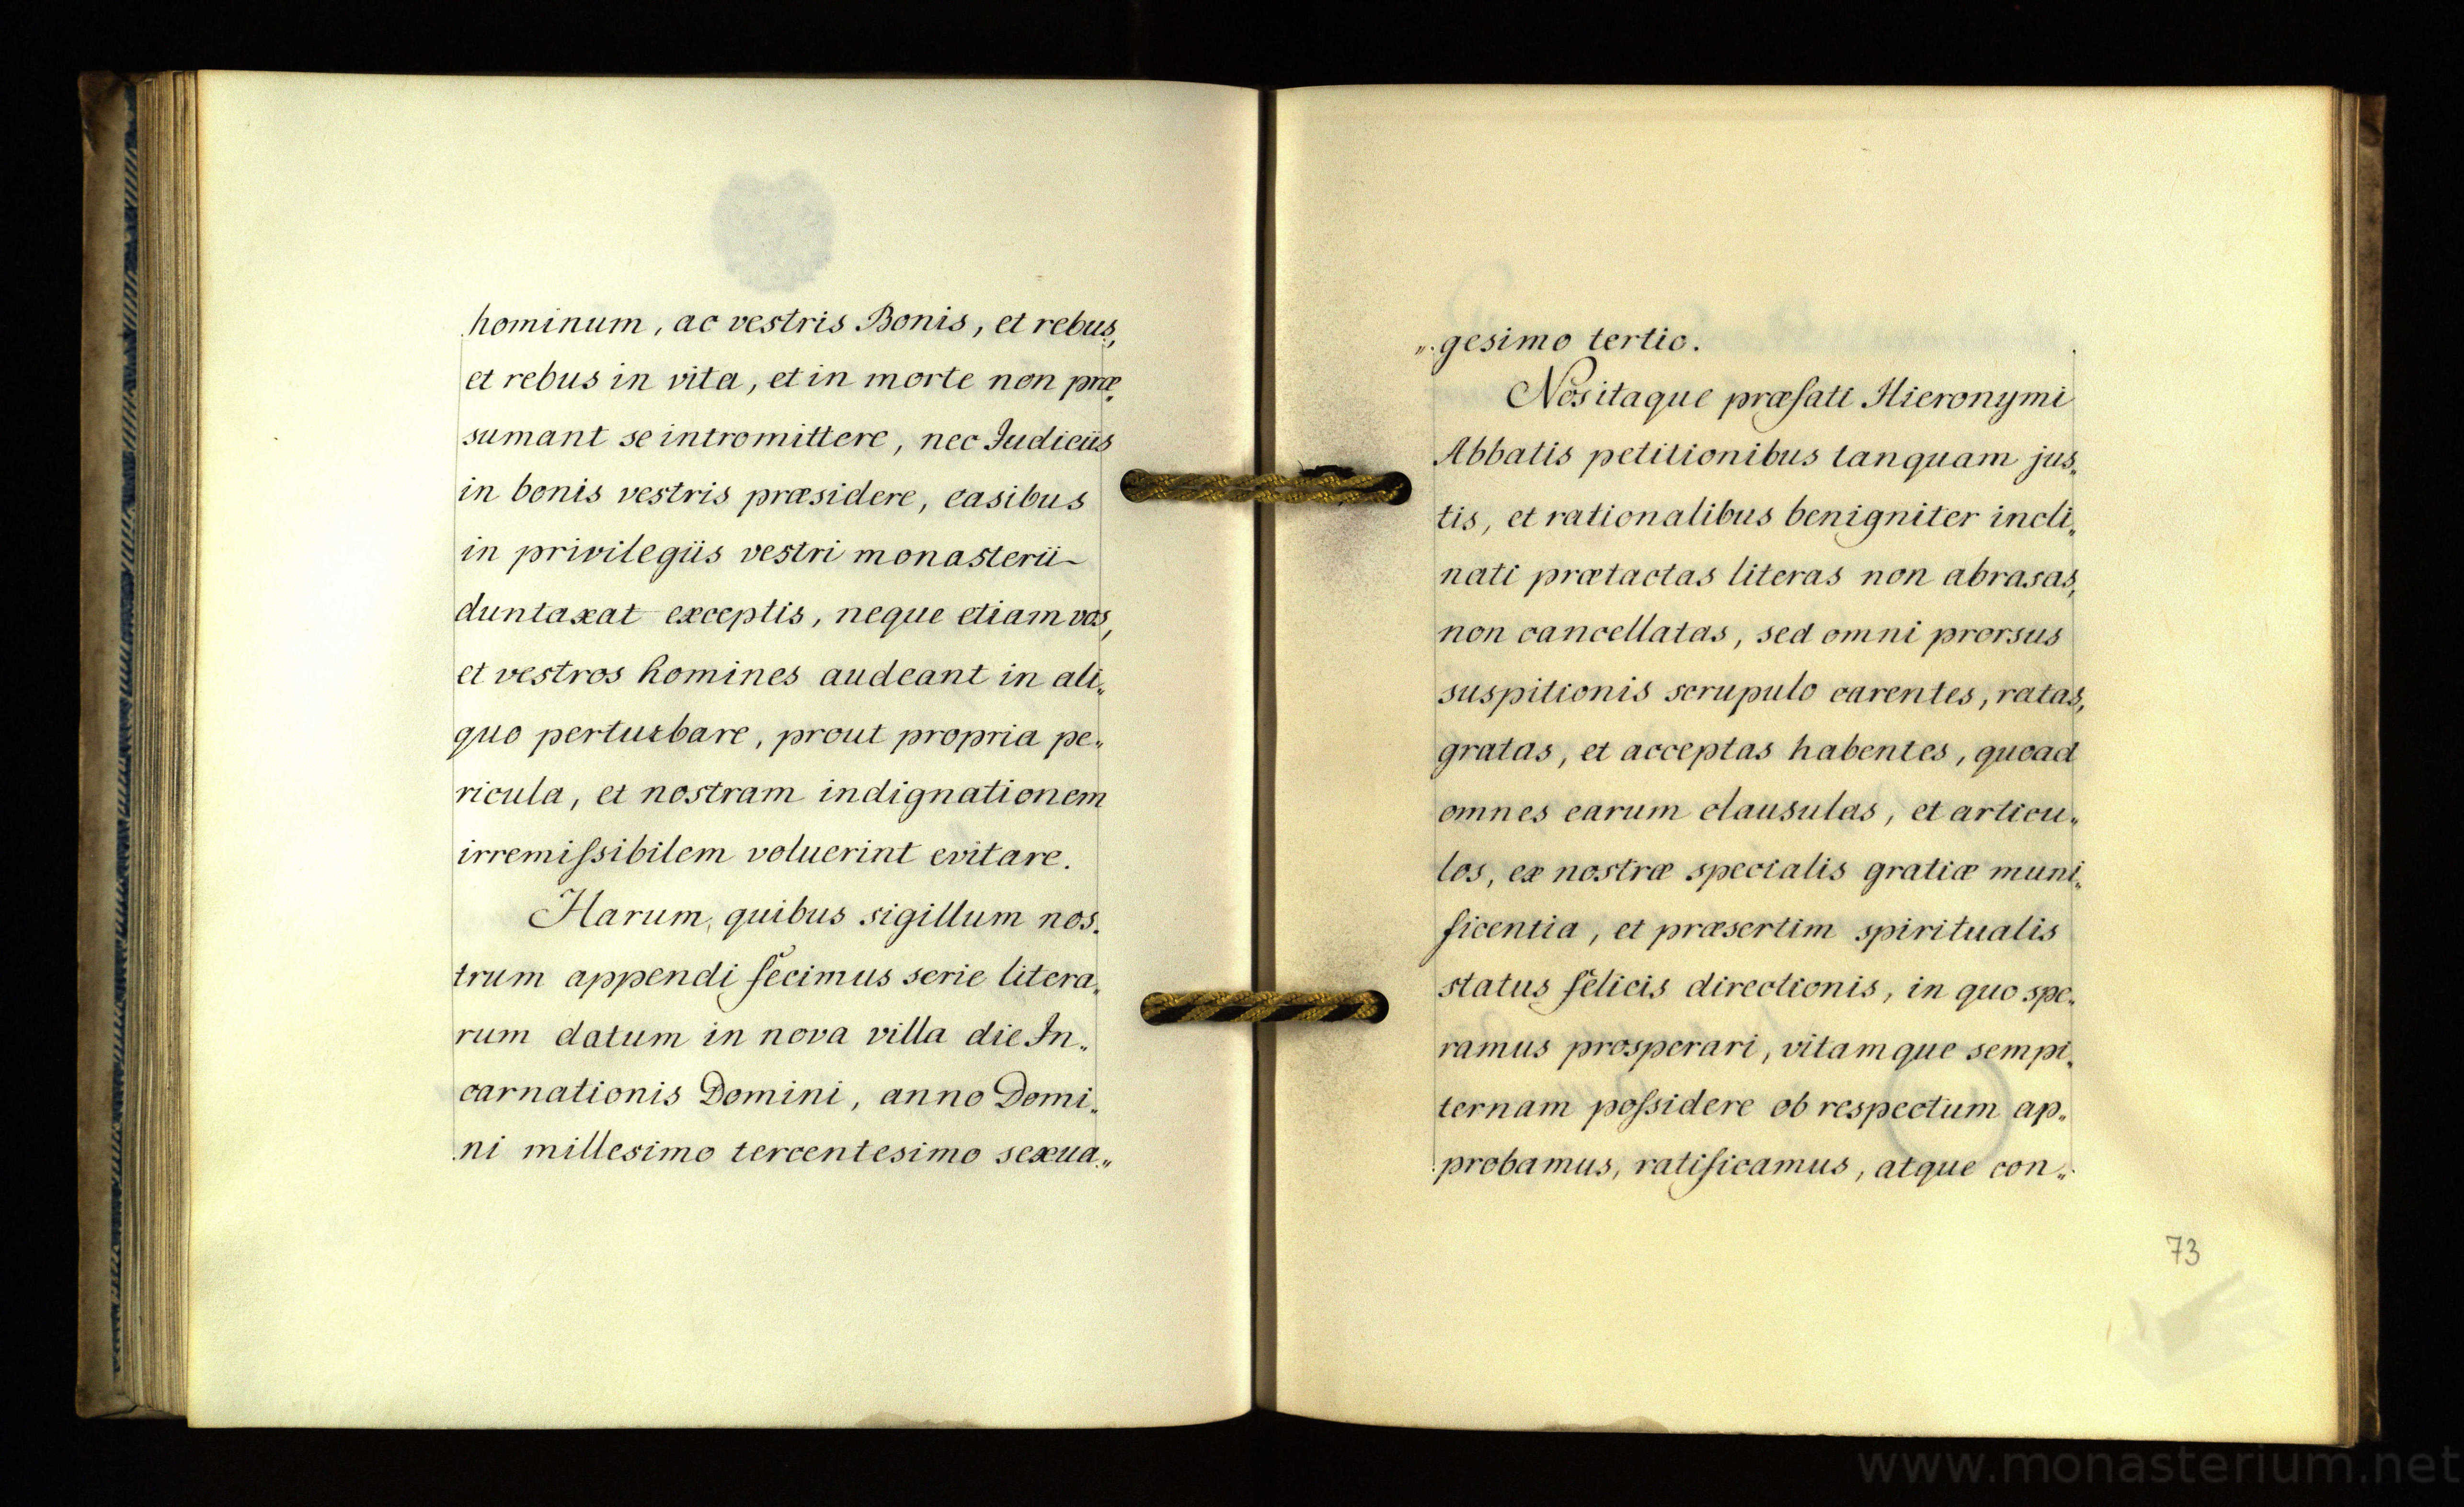 hominum, ac vestris Bonis, et rebus,
et rebus in vita, et in morte non præ„
sumant se intromittere, nec Judiciis
in bonis vestris præsidere, casibus
in privilegiis vestri monasterii
duntaxat exceptis, neque etiam vos,
et vestros homines audeant in ali„
quo perturbare, prout propria pe„
ricula, et nostram indignationem
irremiſsibilem voluerint evitare.
Harum, quibus sigillum nos„
trum appendi fecimus serie litera„
rum datum in nova villa die In„
carnationis Domini, anno Domi„
ni millesimo tercentesimo sexua„
„gesimo tertio.
Nos itaque præfati Hieronymi
Abbatis petitionibus tanquam jus„
tis, et rationalibus benigniter incli„
nati prætactas literas non abrasas,
non cancellatas, sed omni prorsus
suspitionis scrupulo carentes, ratas,
gratas, et acceptas habentes, quoad
omnes earum clausulas, et articu„
los, ex nostræ specialis gratiæ muni„
ficentia, et præsertim spiritualis
status felicis directionis, in quo spe„
ramus prosperari, vitamque sempi„
ternam poſsidere ob respectum ap„
probamus, ratificamus, atque con„
73
www.monasterium.net